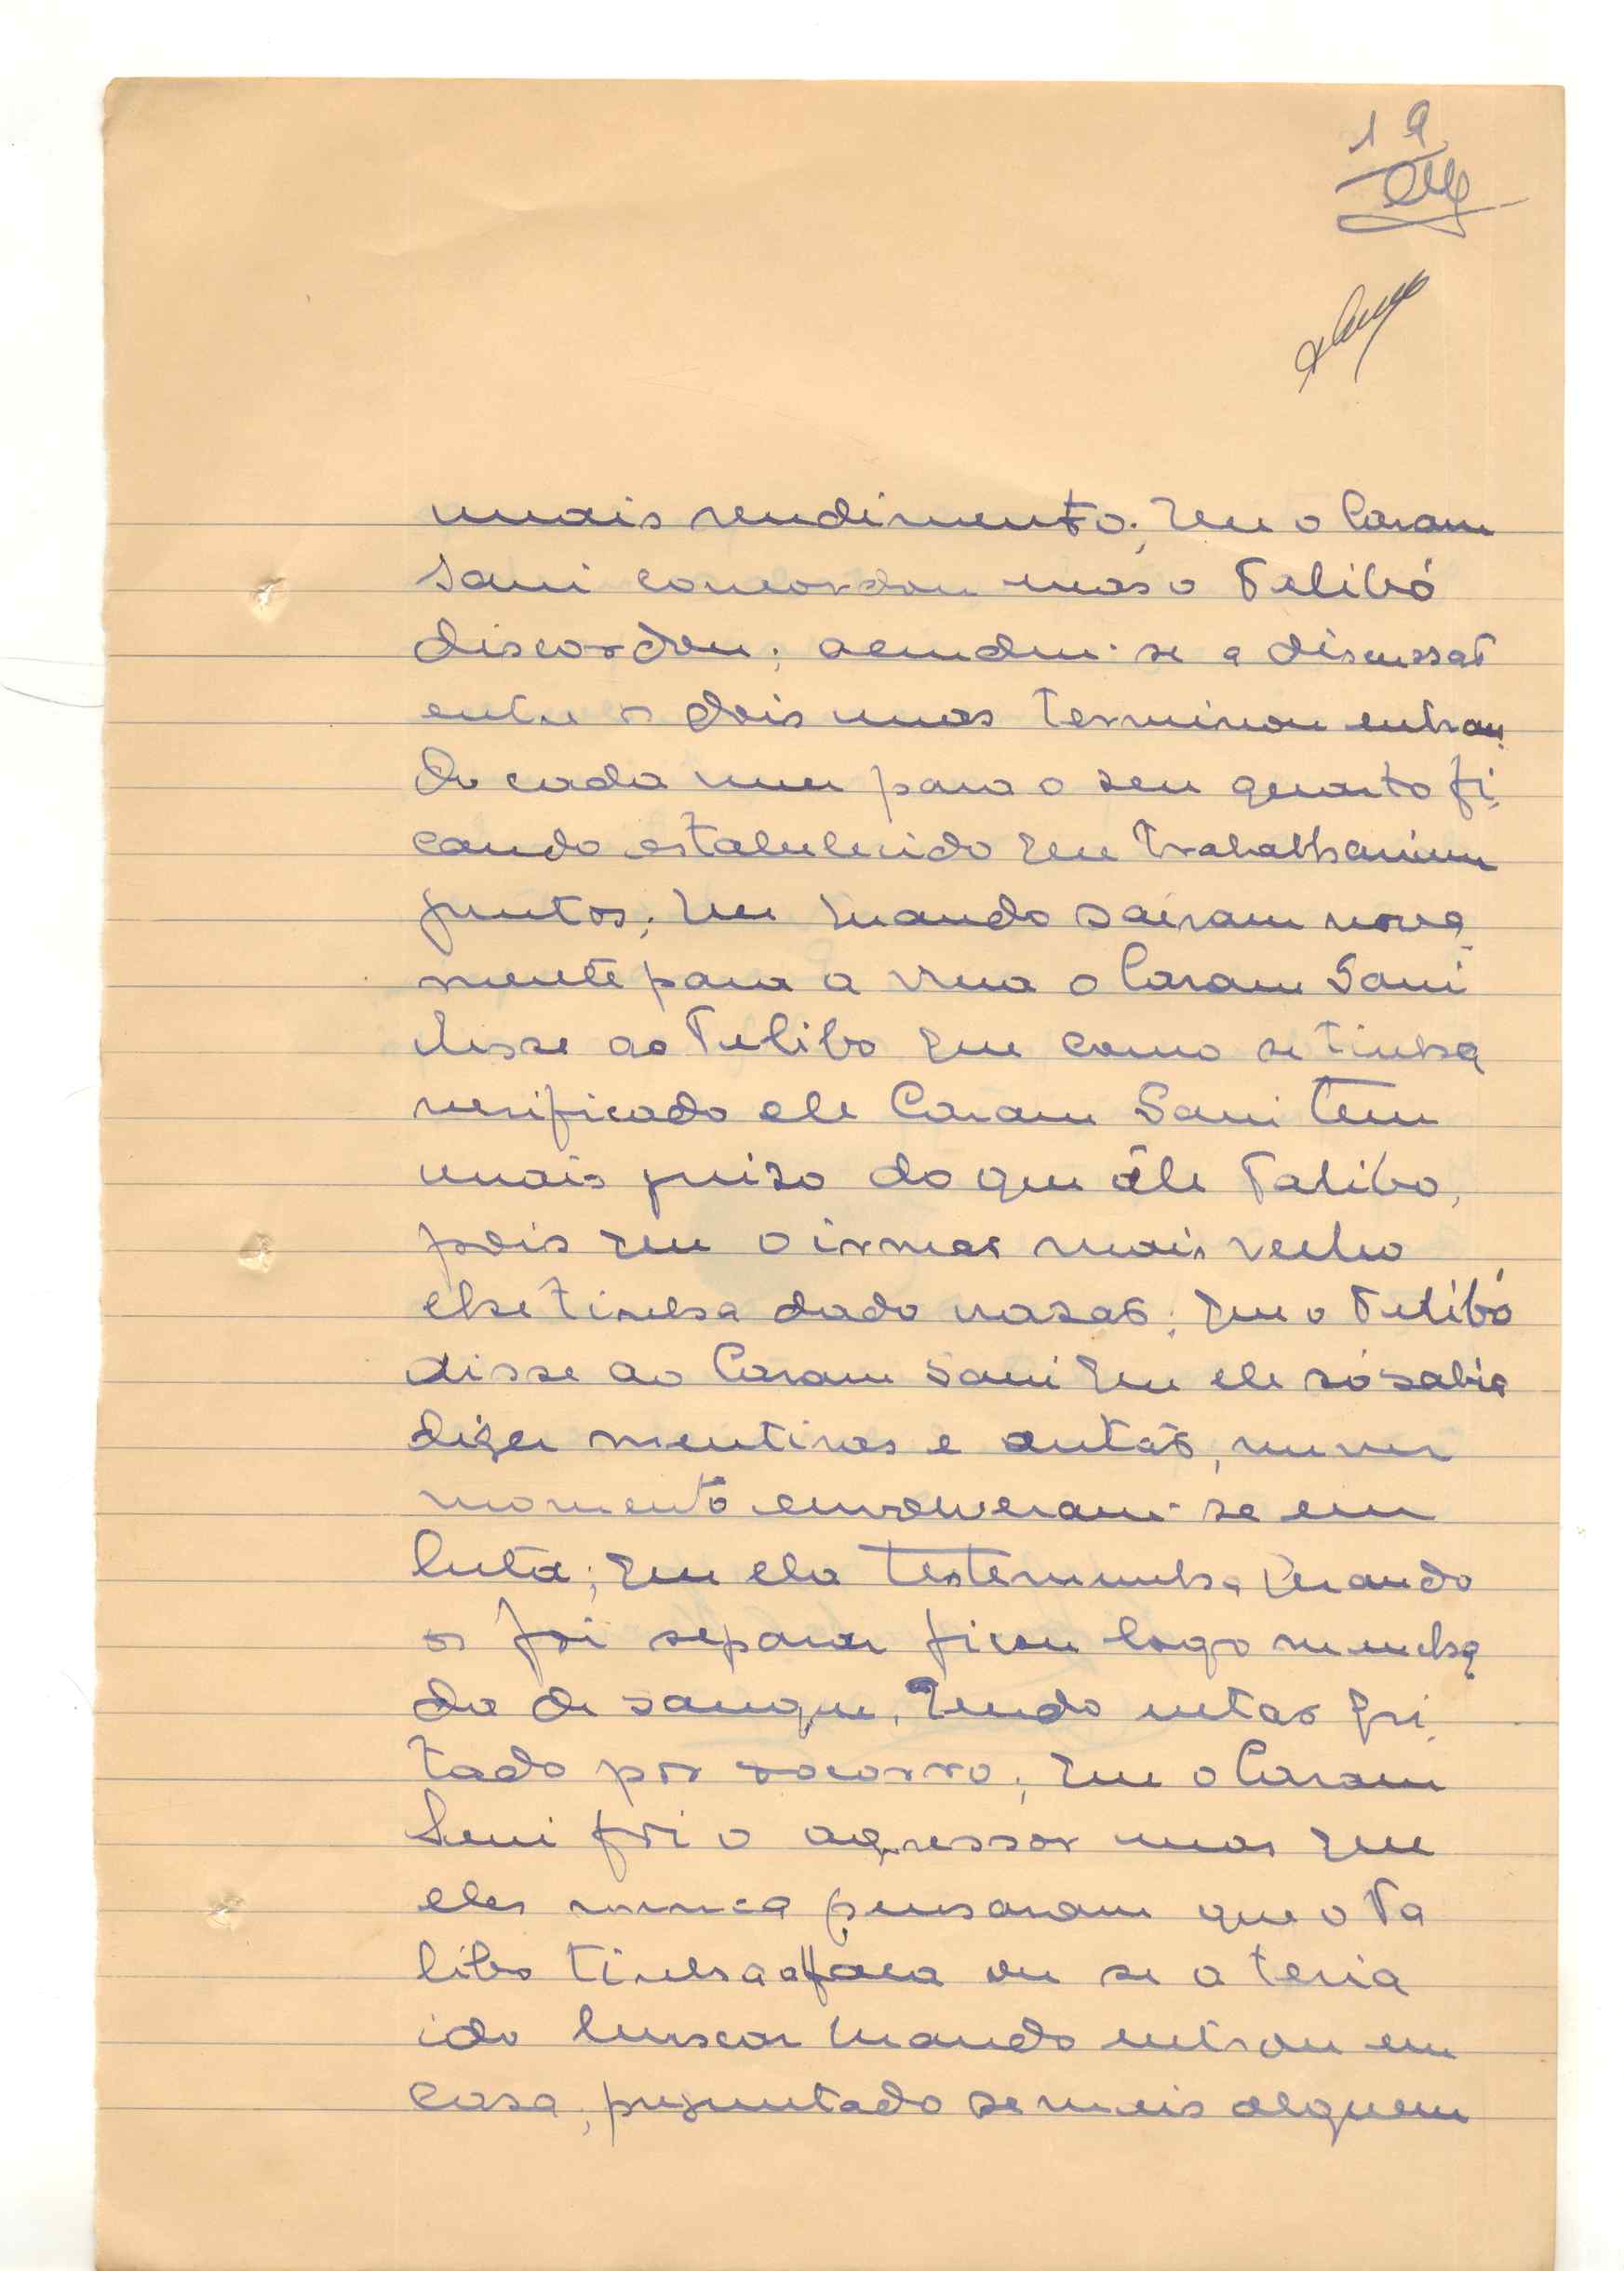 19
mais rendimento; que o Caram
Sani concordou mas o Talibó
discordou; acendeu-se a discussão
entre os dois mas terminou entran-
do cada um para o seu quarto fi-
cando estabelecido que trabalhariam
juntos; que quando sairam nova-
mente para a rua o Caram Sani
disse ao Talibo que como se tinha
verificado ele Caram Sani tem
mais juizo do que êle Talibo,
pois que o irmão mais velho
lhe tinha dado razão; que o Talibó
disse ao Caram Sani que ele só sabia
dizer mentiras e então, num
momento envolveram-se em
luta; que ela testemunha quando
os foi separar ficou logo muncha-
da de sangue, tendo então gri-
tado por socorro; que o Caram
Sani foi o agressor mas que
eles nunca pensaram que o Ta
libo tinha a faca ou se a teria
ido buscar quando entrou em
casa; preguntado se mais alguem